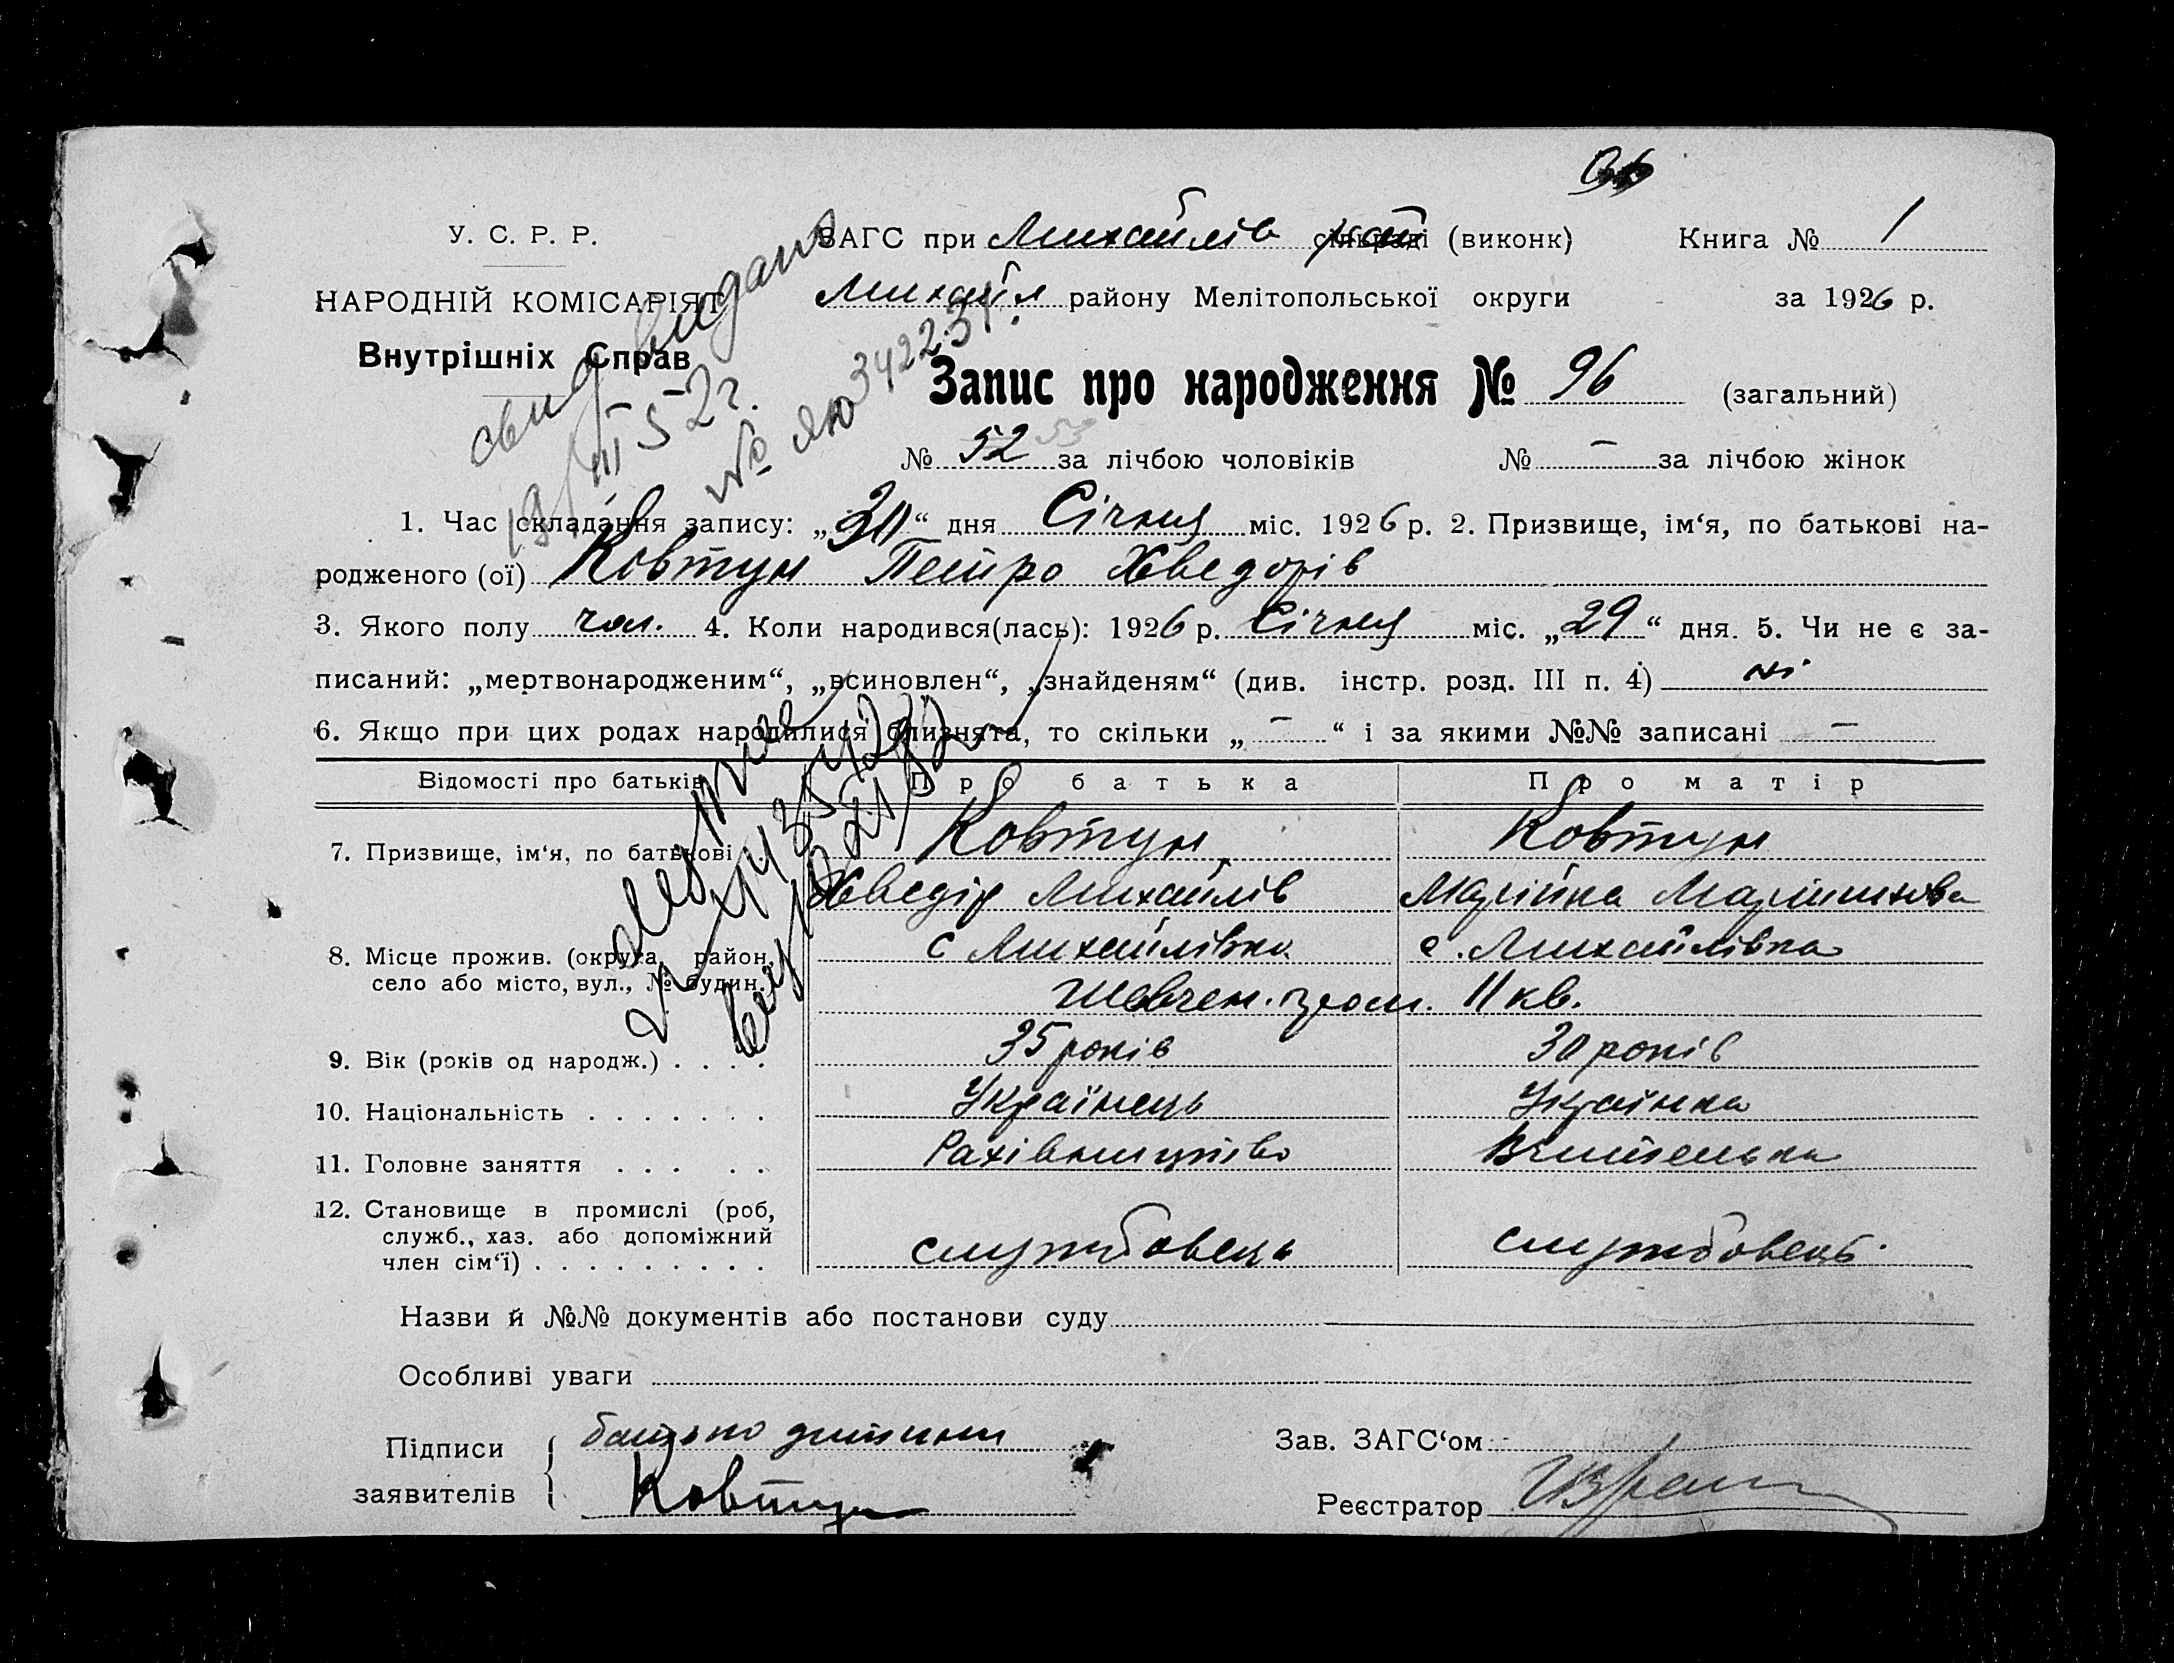 96
У. С. Р. Р.
ЗАГС при Михайлів рай (виконк) Книга № 1
НАРОДНІЙ КОМІСАРІЯТ
Михайл району Мелітопольської округи за 1926 р.
Внутрішніх Справ
Запис про народження № 96 (загальний)
№ 52 53 за лічбою чоловіків № – за лічбою жінок
свид видано
19/III 52 г.
№ ЯЮ 342231.
1. Час складання запису: „30“ дня Січня міс. 1926 р. 2. Призвище, ім‘я, по батькові на-
родженого (ої) Ковтун Петро Хведорів
3. Якого полу чол. 4. Коли народився(лась): 1926 р. Січня міс. „29“ дня. 5. Чи не є за-
писаний: „мертвонародженим“, „всиновлен“, „знайденям“ (див. інстр. розд. III п. 4) ні
6. Якщо при цих родах народилися близнята, то скільки „ – “ і за якими №№ записані –
Відомості про батьків Про батька Про матір
7. Призвище, ім‘я, по батькові Ковтун Ковтун
Хведір Михайлів Марійка
8. Місце прожив. (округа, район, с Михайлівка с. Михайлівка
село або місто, вул., № будин.) Шевчен. гром. 11 кв.
9. Вік (років од народж.) . . . . 35 років 30 років
10. Національність . . . . . . . Українець Українка
11. Головне заняття . . . . . Рахівництво Вчителька
12. Становище в промислі (роб,
служб., хаз. або допоміжний
член сім‘ї) . . . . . . . . . службовець службовець.
Назви й №№ документів або постанови суду
Особливі уваги
Підписи батько дитини Зав. ЗАГС‘ом
заявителів Ковтун Реєстратор